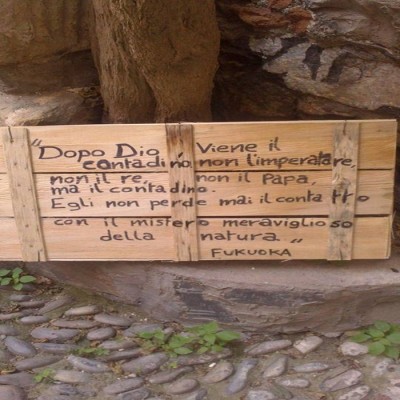 "Dopo Dio, Viene il
contadino, non l'imperatore,
non il re, non il Papa,
ma il contadino.
Egli non perde mai il contatto
con il mistero meraviglioso
della natura"
FUKUOKA